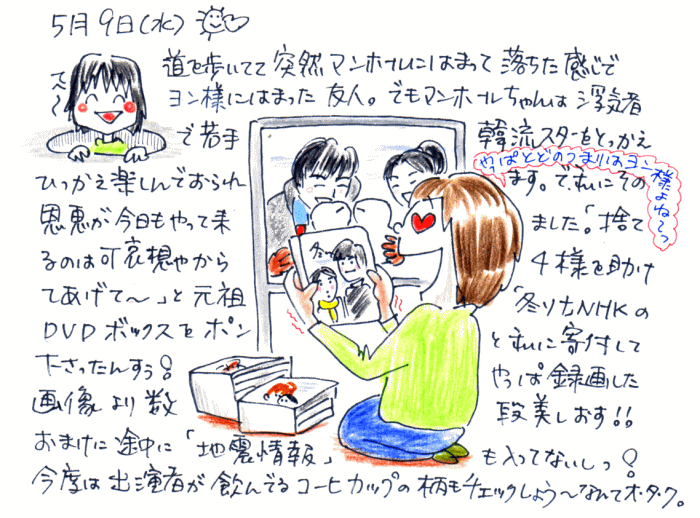 5月9日(水)
道を歩いてて突然マンホールにはまって落ちた感じで
ヨン様にはまった友人。でもマンホールちゃんは浮気者
で若手 韓流スターをとっかえ
やぱとどのつまりはヨン様よね~っ
ひっかえ楽しんでおられ ます。で、私にその
恩恵が今日もやって来 ました。「捨て
るのは可哀想やから 4様を助け
てあげて~」と元祖 「冬ソナNHKの
DVDボックスをポン と私に寄付して
下さったんすぅ! やっぱ録画した
画像より数 段美しおす!!
おまけに途中に「地震情報」 も入ってないしっ!
今度は出演者が飲んでるコーヒカップの柄もチェックしょう~なんてオ・タ・ク。
て~
冬